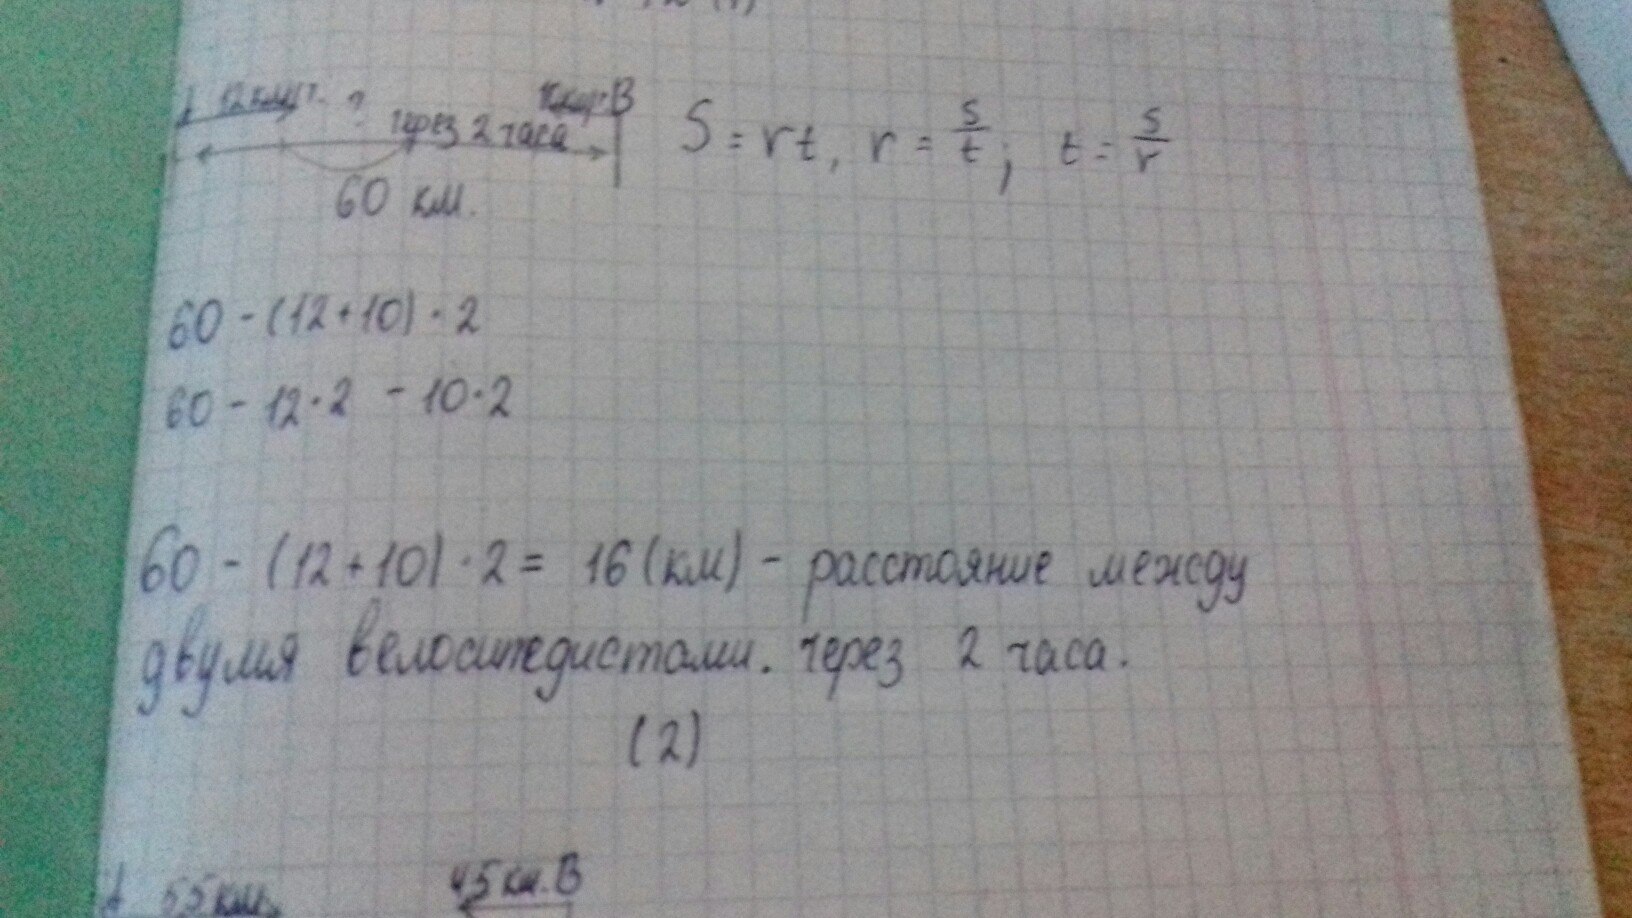 А 12 км/ч. ? 10 км/ч В
через 2 часа
60 км.
S = rt, r = s/t; t = s/r
60 - (12+10) · 2
60 - 12·2 - 10·2
60 - (12+10) · 2 = 16 (км) - расстояние между
двумя велосипедистами. через 2 часа.
(2)
А 55 км. 45 км. В